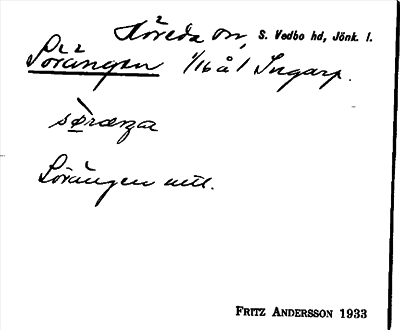 Höreda sn, S. Vedbo hd, Jönk. l.
Sörängen 1/16 å 1 Ingarp.
sø̀ræŋa
Sörängen mtl.
FRITZ ANDERSSON 1933